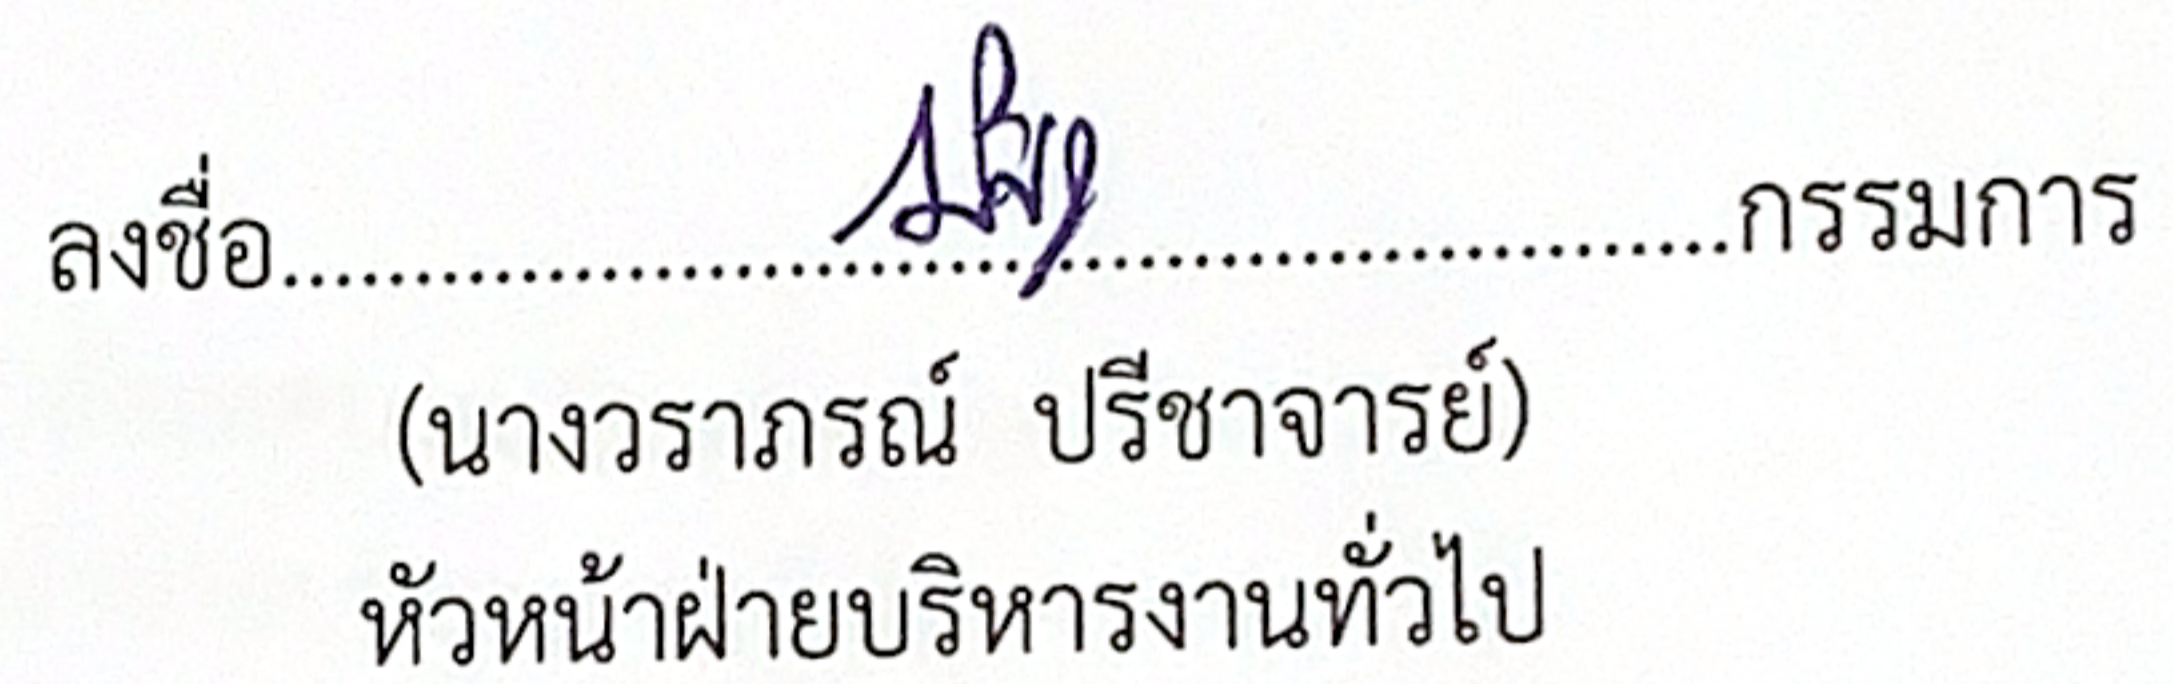 ลงชื่อ................................................กรรมการ
(นางวราภรณ์ ปรีชาจารย์)
หัวหน้าฝ่ายบริหารงานทั่วไป